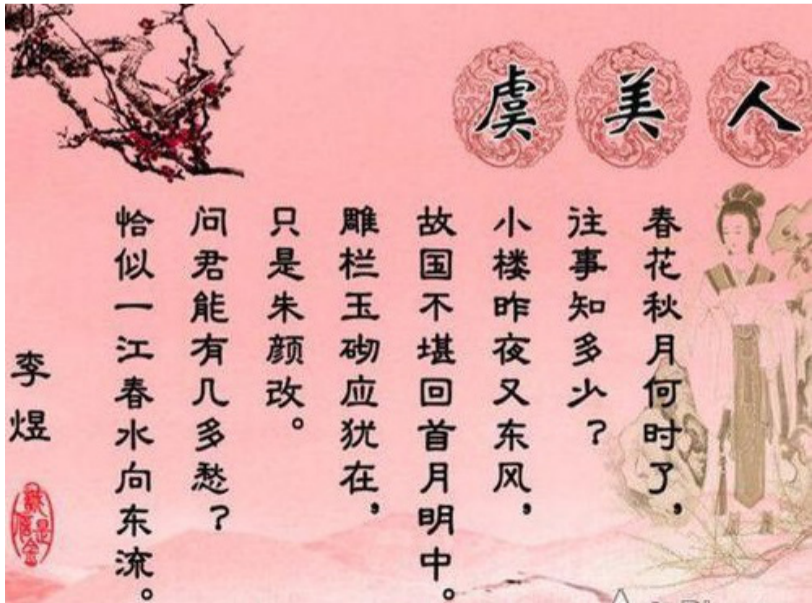 虞美人
春花秋月何时了，
往事知多少？
小楼昨夜又东风，
故国不堪回首月明中。
雕栏玉砌应犹在，
只是朱颜改。
问君能有几多愁？
恰似一江春水向东流。
李煜